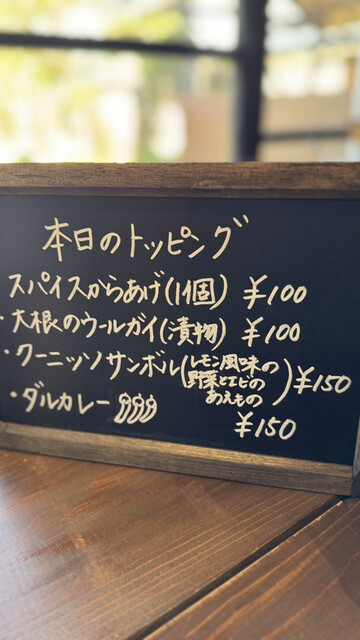 本日のトッピング
スパイスからあげ(1個) ¥100
・大根のウールガイ(漬物) ¥100
・クーニッソサンボル(レモン風味の野菜とエビのあえもの) ¥150
・ダルカレー ¥150